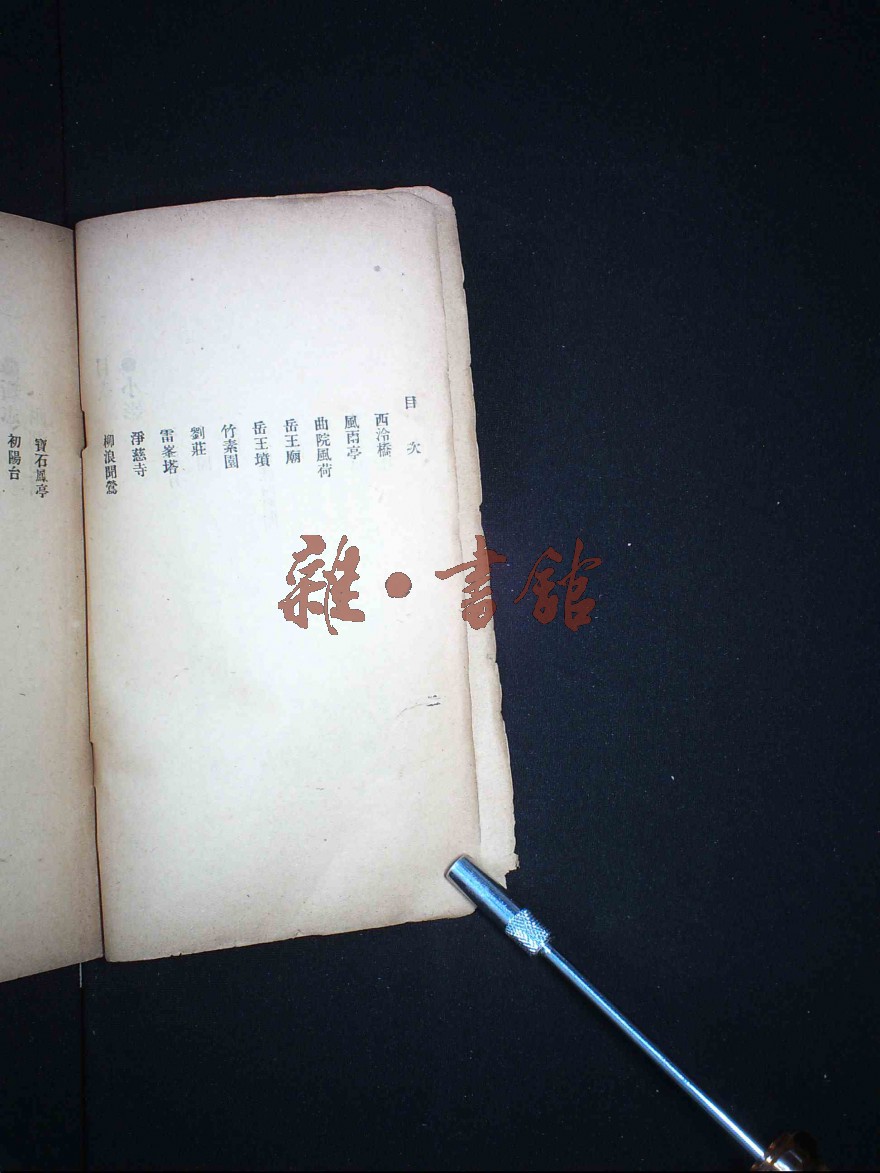 目次
西泠橋
風雨亭
曲院風荷
岳王廟
岳王墳
竹素園
劉莊
雷峯塔
淨慈寺
柳浪聞鶯
二
寶石鳳亭
初陽台
雜·書館